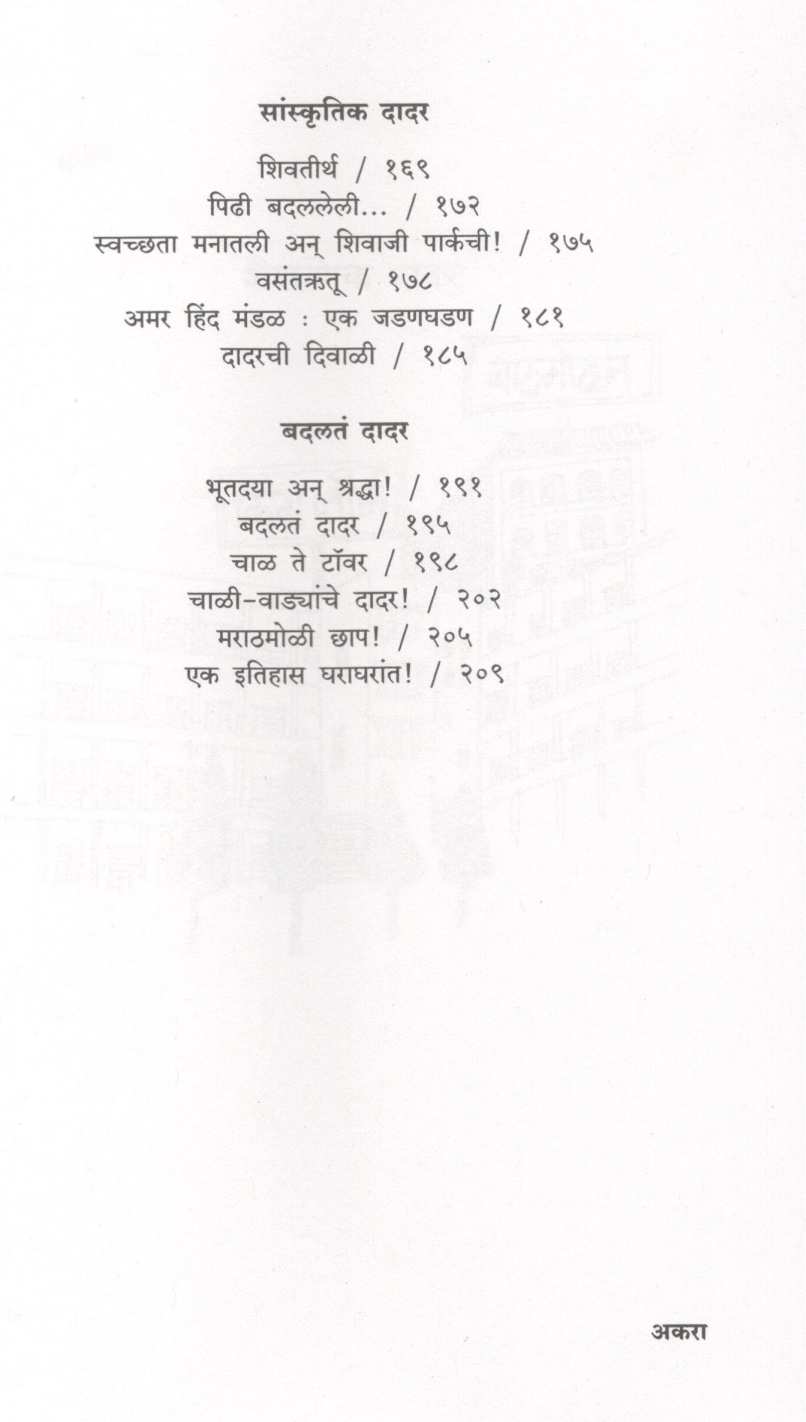 सांस्कृतिक दादर
शिवतीर्थ / १६९
पिढी बदललेली... / १७२
स्वच्छता मनातली अन् शिवाजी पार्कची! / १७५
वसंतऋतू / १७८
अमर हिंद मंडळ : एक जडणघडण / १८१
दादरची दिवाळी / १८५
बदलतं दादर
भूतदया अन् श्रद्धा! / १९१
बदलतं दादर / १९५
चाळ ते टॉवर / १९८
चाळी-वाड्यांचे दादर! / २०२
मराठमोळी छाप! / २०५
एक इतिहास घराघरांत! / २०९
अकरा